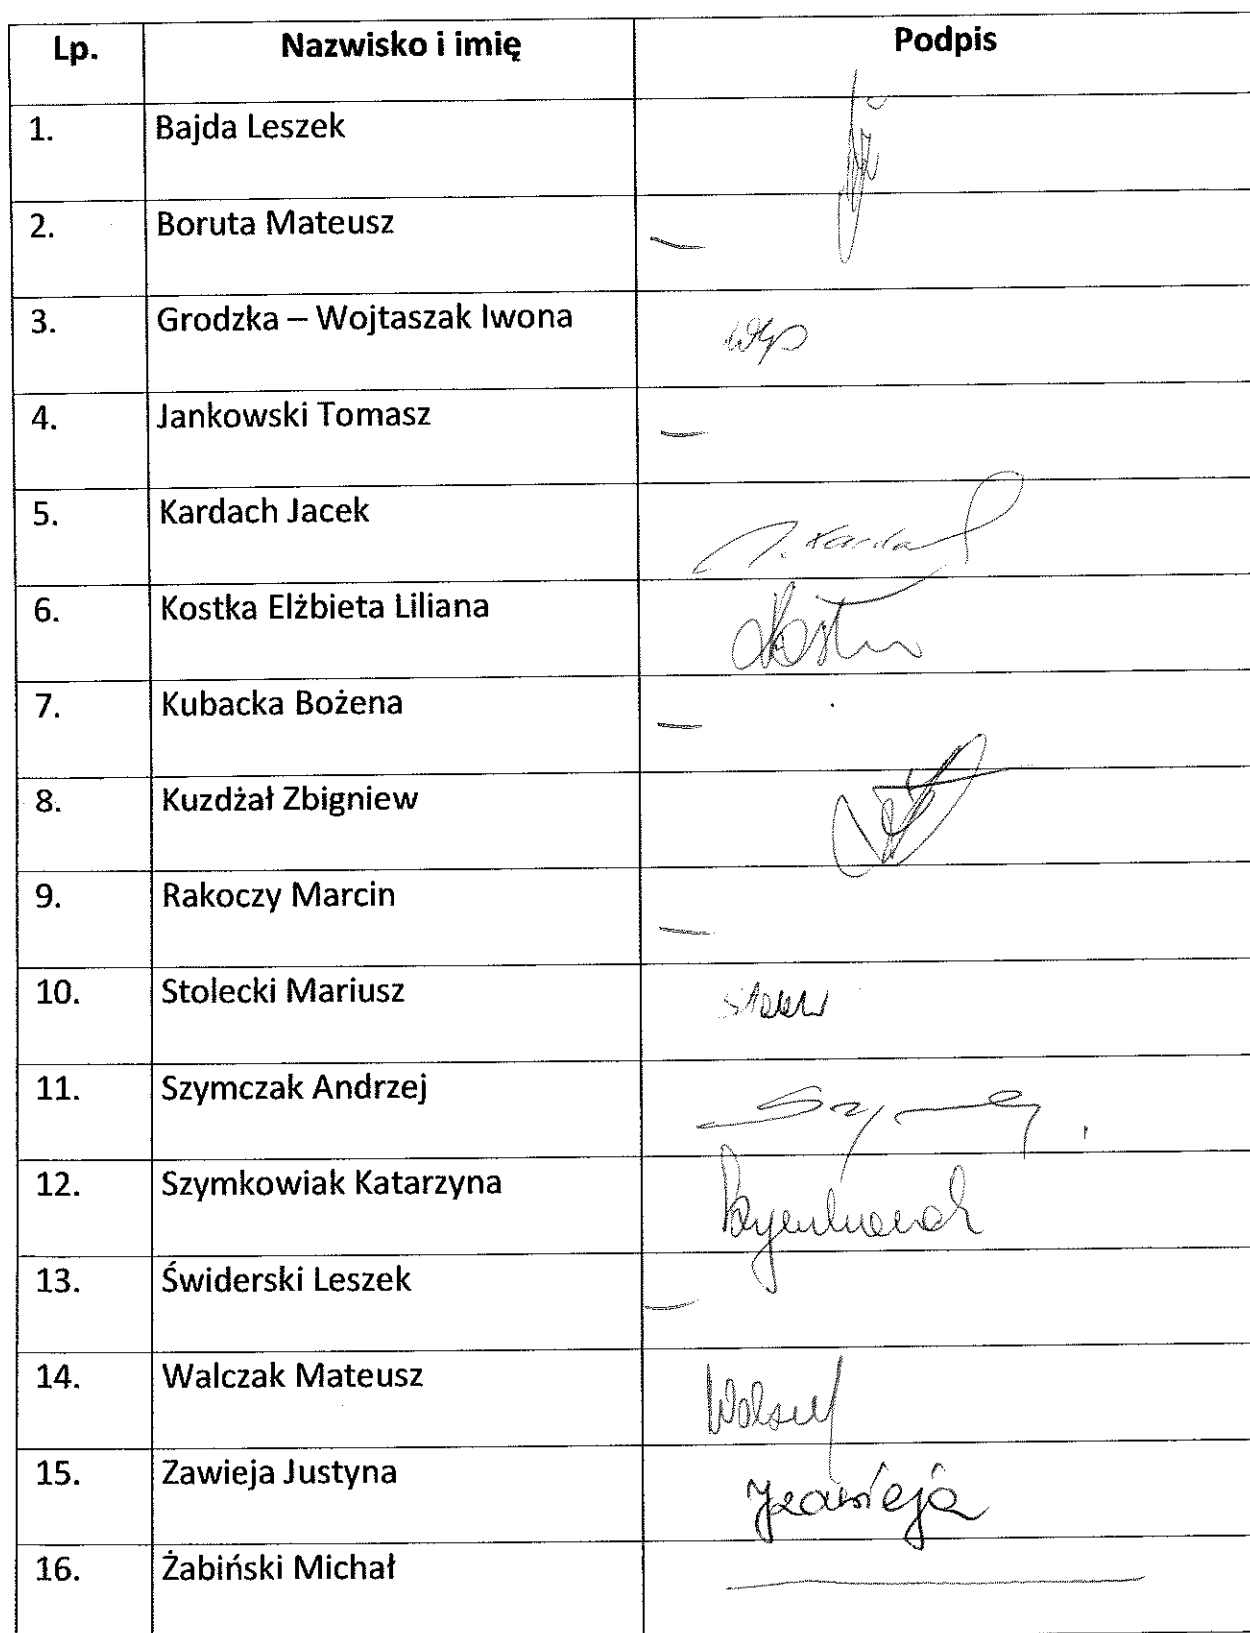 Lp. Nazwisko i imię Podpis
1. Bajda Leszek
2. Boruta Mateusz —
3. Grodzka – Wojtaszak Iwona
4. Jankowski Tomasz —
5. Kardach Jacek J. Kardach
6. Kostka Elżbieta Liliana
7. Kubacka Bożena —
8. Kuzdżał Zbigniew
9. Rakoczy Marcin —
10. Stolecki Mariusz
11. Szymczak Andrzej
12. Szymkowiak Katarzyna
13. Świderski Leszek —
14. Walczak Mateusz
15. Zawieja Justyna JZawieja
16. Żabiński Michał —